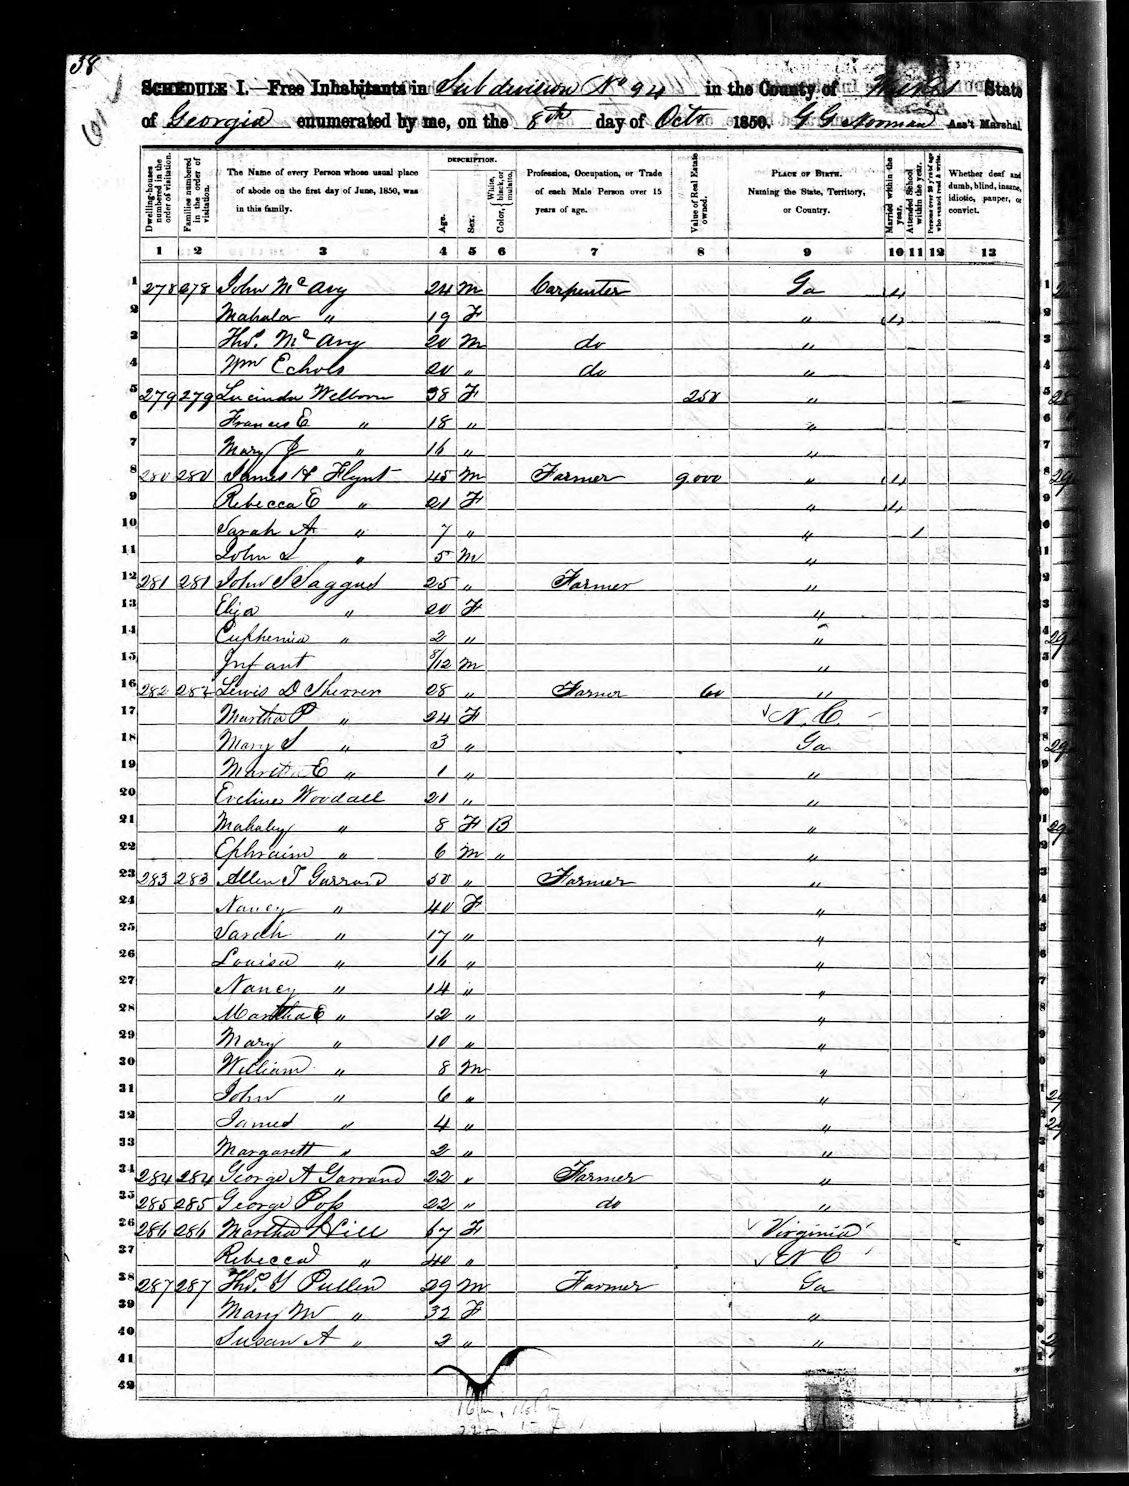 38
SCHEDULE I.—Free Inhabitants in Subdivision No 94 in the County of Wilkes State
of Georgia enumerated by me, on the 8th day of Octr 1850. G G Norman Ass't Marshal
Dwelling-houses numbered in the order of visitation.
Families numbered in the order of visitation.
The Name of every Person whose usual place of abode on the first day of June, 1850, was in this family.
DESCRIPTION.
Age.
Sex.
Color, White, black, or mulatto.
Profession, Occupation, or Trade of each Male Person over 15 years of age.
Value of Real Estate owned.
PLACE OF BIRTH. Naming the State, Territory, or Country.
Married within the year.
Attended School within the year.
Persons over 20 y'rs of age who cannot read & write.
Whether deaf and dumb, blind, insane, idiotic, pauper, or convict.
1 2 3 4 5 6 7 8 9 10 11 12 13
1 278 278 John McAvy 24 M Carpenter Ga
2 Mahala " 19 F "
3 Thos. McAvy 20 M do "
4 Wm Echols 20 " do "
5 279 279 Lucinda Welborn 38 F 250 "
6 Frances E " 18 " "
7 Mary J " 16 " "
8 280 280 James H Flynt 45 M Farmer 9000 "
9 Rebecca E " 21 F "
10 Sarah A " 7 " " 1
11 John S " 5 M "
12 281 281 John S Saggus 25 " Farmer "
13 Eliza " 20 F "
14 Euphemia " 2 " "
15 Infant 8/12 M "
16 282 282 Lewis D Sherrer 28 " Farmer 60 "
17 Martha P " 24 F N. C.
18 Mary S " 3 " Ga
19 Martha E " 1 " "
20 Eveline Woodall 21 " "
21 Mahaley " 8 F B "
22 Ephraim " 6 M " "
23 283 283 Allen T Garrard 50 " Farmer "
24 Nancy " 40 F "
25 Sarah " 17 " "
26 Louisa " 16 " "
27 Nancy " 14 " "
28 Martha E " 12 " "
29 Mary " 10 " "
30 William " 8 M "
31 John " 6 " "
32 James " 4 " "
33 Margarett " 2 " "
34 284 284 George A Garrard 22 " Farmer "
35 285 285 George Poss 22 " do "
36 286 286 Martha Hill 67 F Virginia
37 Rebecca " 40 " N C
38 287 287 Thos. Y Pullen 29 M Farmer Ga
39 Mary M " 32 F "
40 Susan A " 2 " "
41
42